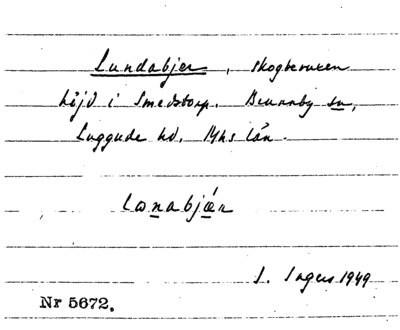 Lundabjer, skogbevuxen
höjd i Smedstorp. Brunnby sn,
Luggude hd. Mhs län.
Lonabjær
S. Ingers 1949
Nr 5672.